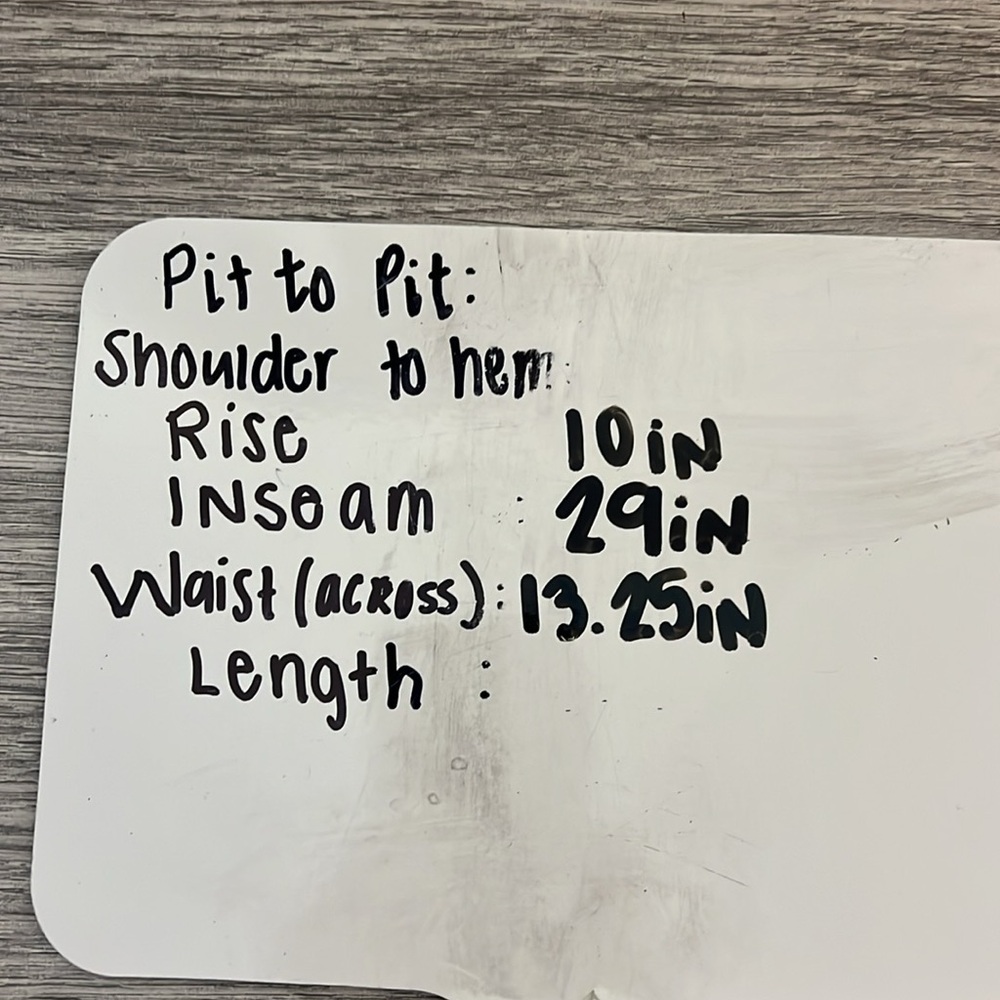 Pit to Pit:
Shoulder to hem:
Rise 10 iN
INseam : 29 iN
Waist (across): 13.25 iN
Length :